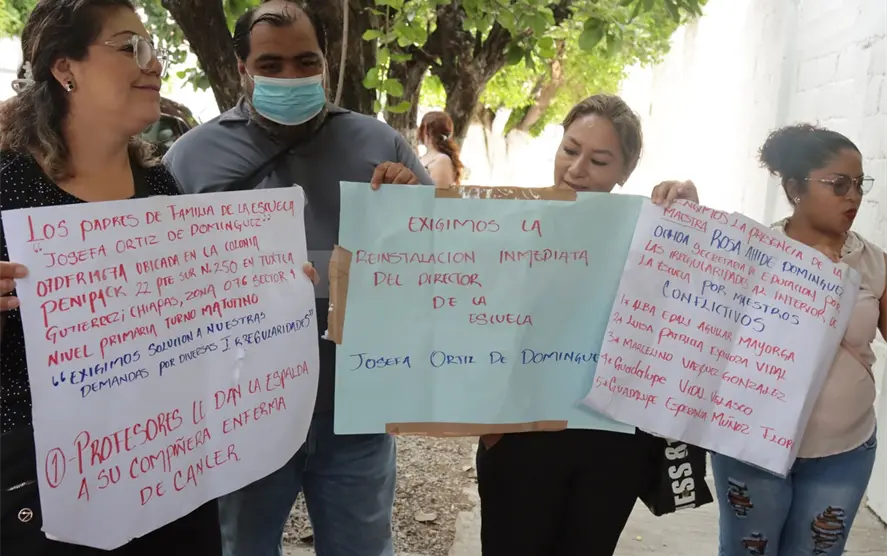 LOS PADRES DE FAMILIA DE LA ESCUELA
"JOSEFA ORTIZ DE DOMINGUEZ"
07DFR1967A UBICADA EN LA COLONIA
PENIPACK 22 PTE SUR N.250 EN TUXTLA
GUTIERREZ; CHIAPAS, ZONA 076 SECTOR 1
NIVEL PRIMARIA TURNO MATUTINO
"EXIGIMOS SOLUCIÓN A NUESTRAS
DEMANDAS POR DIVERSAS IRREGULARIDADES"
① - PROFESORES LE DAN LA ESPALDA
A SU COMPAÑERA ENFERMA
DE CANCER
EXIGIMOS LA
REINSTALACION INMEDIATA
DEL DIRECTOR
DE LA
ESCUELA
JOSEFA ORTIZ DE DOMINGUE
LA PRESENCIA DE LA
MAESTRA ROSA AIDE DOMINGUEZ
OCHOA y SECRETARIA DE EDUCACION POR
LAS IRREGULARIDADES AL INTERIOR DE
LA ESCUELA POR MAESTROS
CONFLICTIVOS
1= ALBA EDALI AGUILAR MAYORGA
2= LUISA PATRICIA ESPINOZA VIDAL
3= MARCELINO VASQUEZ GONZALEZ
4= GUADALUPE VIDAL VELASCO
5= GUADALUPE ESPERANZA MUÑOZ FLOR
NESS &